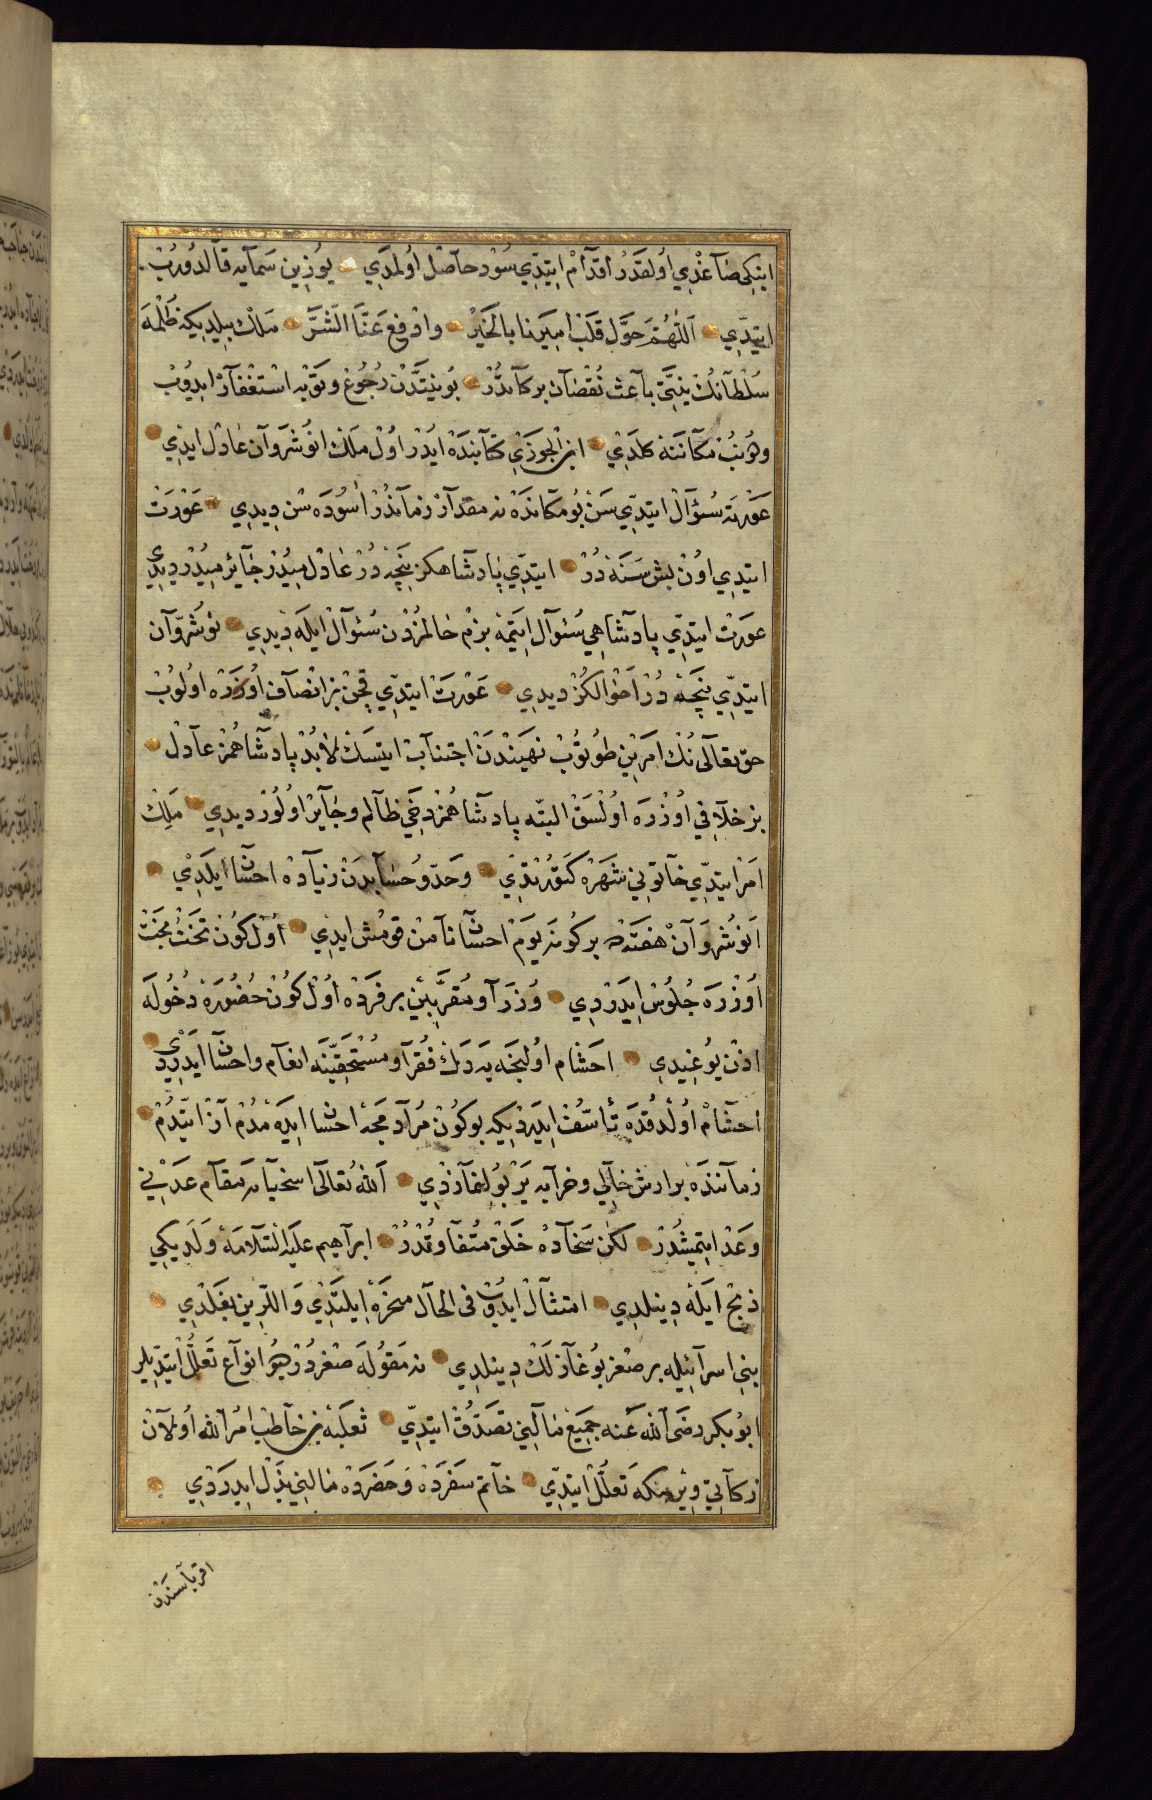 اینكی صاغدی اولقدر اقدام ایتدی سود حاصل اولمدی یوزین سمایه قالدوروب
ایتدی اللهم حول قلب امیرنا بالخیر وادفع عنا الشر ملك بیلدیكه ظلمه
سلطانك نیتی باعث نقصان بركاتدر بو نیتدن رجوع وتوبه استغفار ایدوب
ودونب مكاننه كلدی ابن الجوزی كتابنده ایدر اول ملك انوشروان عادل ایدی
عورته سؤال ایتدی سن بو مكانده نه مقدار زماندر اسوده سن دیدی عورت
ایتدی اون بش سنه در ایتدی پادشاهكز نیجه در عادل میدر جائر میدر دیدی
عورت ایتدی پادشاهی سئوال ایتمه بزم حالمزدن سئوال ایله دیدی نوشروان
ایتدی نیجه در احوالكز دیدی عورت ایتدی قچن بز انصاف اوزره اولوب
حق تعالی نك امرین طوتوب نهیندن اجتناب ایتسك لابد پادشاهمز عادل
بز خلافی اوزره اولسق البته پادشاهمز دخی ظالم وجایر اولور دیدی ملك
امر ایتدی خاتونی شهره كتورتدی وحد وحسابدن زیاده احسان ایلدی
انوشروان هفته ده بر كونه یوم احسان نامن قومش ایدی اول كون تخت بخت
اوزره جلوس ایدردی وزرا ومقربین بر فرده اول كون حضوره دخوله
اذن یوغیدی احشام اولنجه یه دك فقرا ومستحقینه انعام واحسان ایدردی
احشام اولدقده تأسف ایدردیكه بو كون مرادمجه احسان ایده مدم آز ایتدم
زماننده بر ارش خالی وخرابه یر بولنمازدی الله تعالی اسخیایه مقام عدنی
وعد ایتمشدر لكن سخاده خلق متفاوتدر ابراهیم علیه السلامه ولدیكی
ذبح ایله دینلدی امتثال ایدوب فی الحال منحره ایلتدی واللرین بغلدی
بنی اسرائیله بر صغر بوغازلك دینلدی نه مقوله صغردر هو انواع تعلل ایتدیلر
ابو بكر رضی الله عنه جمیع مالین تصدق ایتدی ثعلبه بن خاطب امر الله اولان
زكاتی ویرمكه تعلل ایتدی خاتم سفرده وحضرده مالنی بذل ایدردی
اقرباسندن